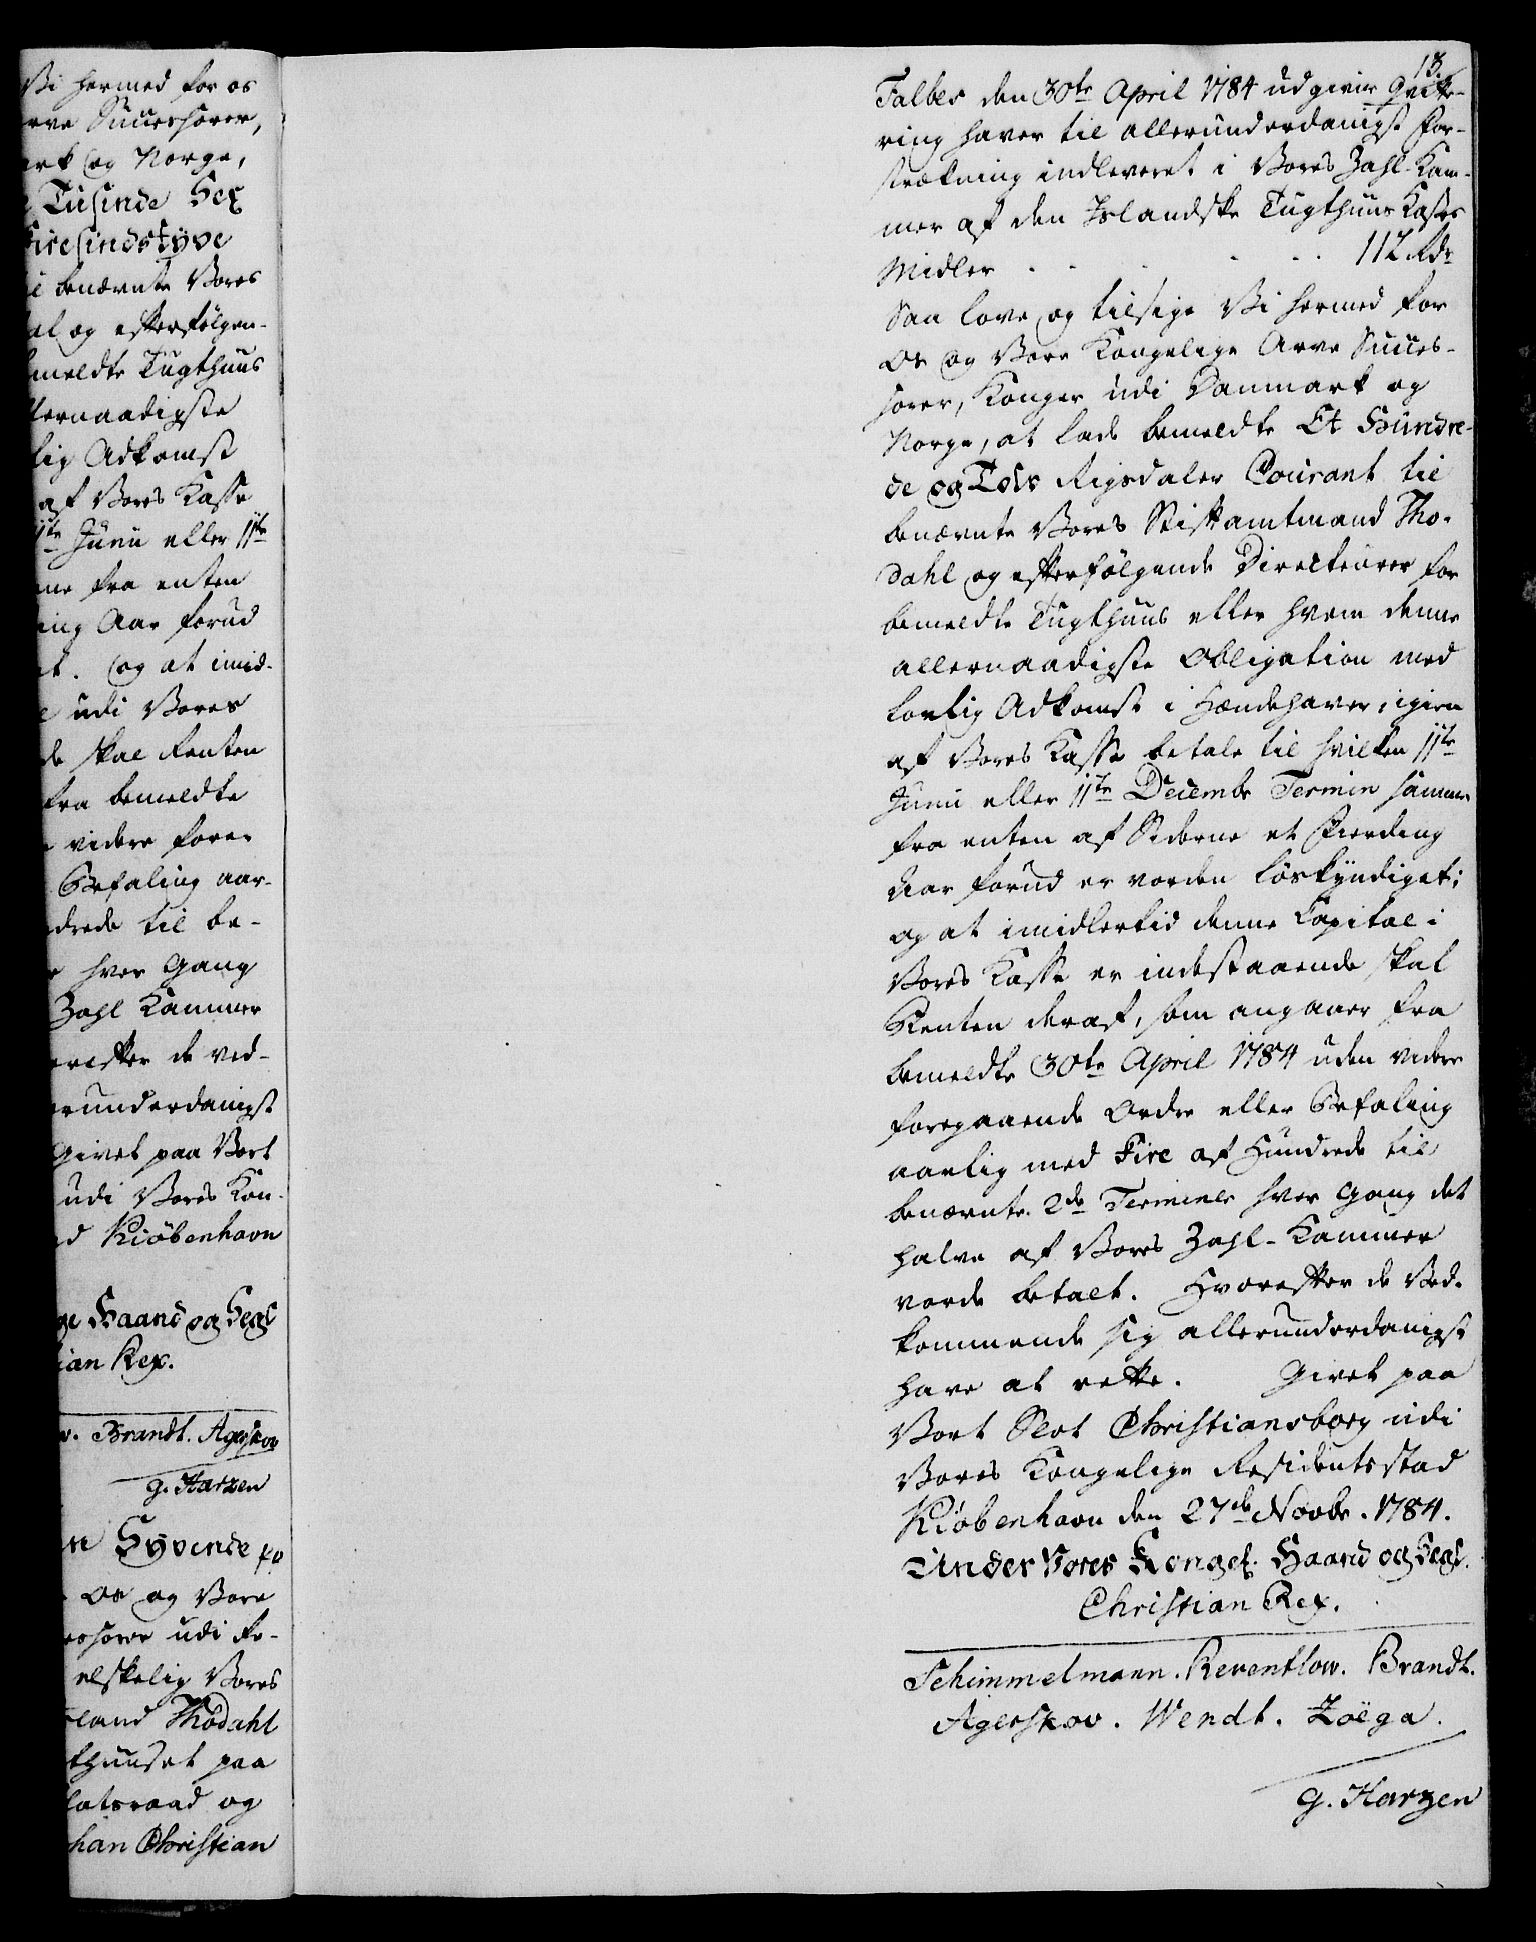 Vi hermed for os
rve Successorer,
ark og Norge,
Tusinde Sex
Firesindstyve
i benævnte Vores
al og efterfølgen-
meldte Tugthuus
lernaadigste
lig Adkomst
af Vores Kasse
11te Junii eller 11te
ne fra enten
ing Aar forud
t. og at imid-
e udi Vores
de skal Renten
fra bemeldte
videre fore-
Befaling aar-
drede til be-
r hver Gang
Zahl Kammer
orefter de ved-
erunderdanigst
Givet paa Vort
udi Vores Kon-
d Kiøbenhavn
ge Haand og Segl
ian Rex.
w. Brandt. Agerskov
G. Harzen
n Syvende p p
Os og Vore
essorer udi Re-
elskelig Vores
land Thodahl
thuuset paa
tatsraad og
han Christian
13.
Falbes den 30te April 1784 udgivne Qvitte-
ring haver til allerunderdanigst For-
strækning indleveret i Vores Zahl-Kam-
mer af den Islandske Tugthuus Kasses
Midler . . . . . . 112 Rdr
Saa love og tilsige Vi hermed for
Os og Vore Kongelige Arve Succes-
sorer, Konger udi Danmark og
Norge, at lade bemeldte Et Hundre-
de og Tolv Rigsdaler Courant til
benævnte Vores Stiftamtmand Tho-
dahl og efterfølgende Directeurer for
bemeldte Tugthuus eller hvem denne
allernaadigste Obligation med
lovlig Adkomst i Hændehaver, igien
af Vores Kasse betale til hvilken 11te
Junii eller 11te Decembr Termin samme
fra enten af Siderne et Fierding
Aar forud er vorden løskyndiget;
og at imidlertid denne Capital i
Vores Kasse er indestaaende skal
Renten deraf, som angaaer fra
bemeldte 30te April 1784 uden videre
foregaaende Ordre eller Befaling
aarlig med Fire af Hundrede til
benævnte 2de Terminer hver Gang det
halve af Vores Zahl-Kammer
vorde betalt. Hvorefter de Ved-
kommende sig allerunderdanigst
have at rette. Givet paa
Vort Slot Christiansborg udi
Vores Kongelige Residentsstad
Kiøbenhavn den 27de Novbr. 1784.
Under Vores Kongel. Haand og Segl.
Christian Rex.
Schimmelmann. Reventlow. Brandt.
Agerskov. Wendt. Zoëga.
G. Harzen